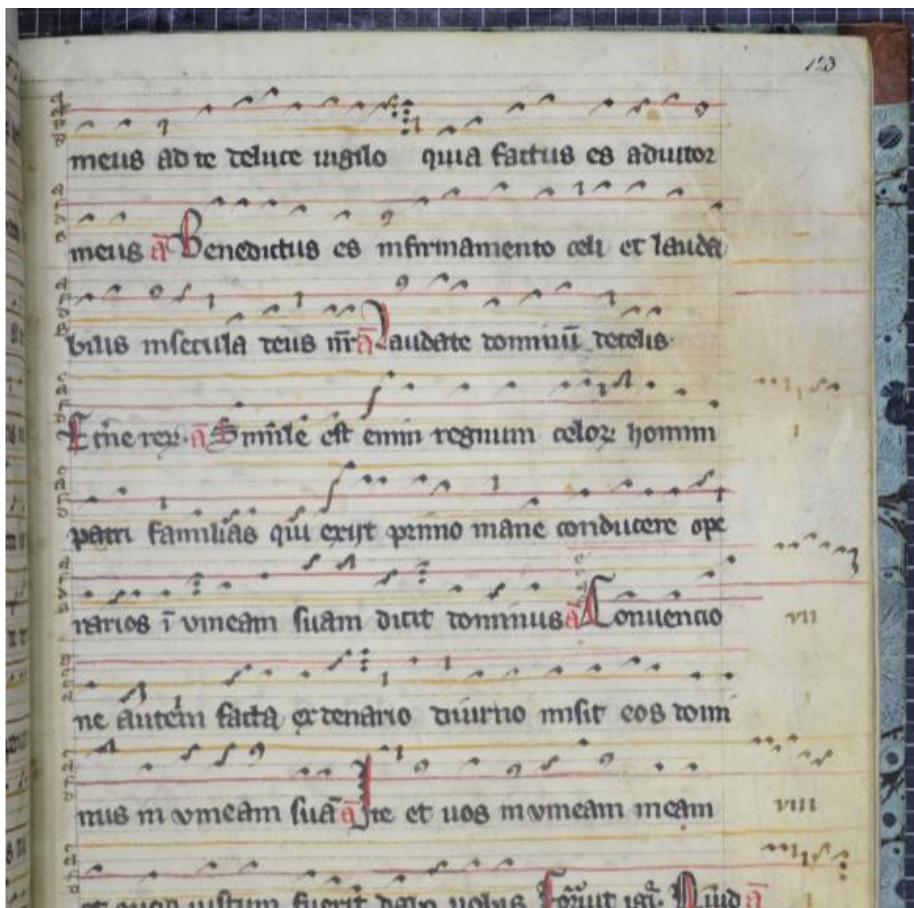 123
meus ad te deluce uigilo quia factus es adiutor
meus a Benedictus es infirmamento celi et lauda
bilis insecula deus nr̄ a Laudate dominū decelis
a Simile est enim regnum celoꝝ homini
patri familias qui exijt primo mane conducere ope
rarios ī vineam suam dicit dominus a Conuencio
ne autem facta ex denario diurno misit eos domi
nus in vineam suā a Ite et uos inuineam meam
et quod iustum fuerit dabo uobis a
I
VII
VIII
I